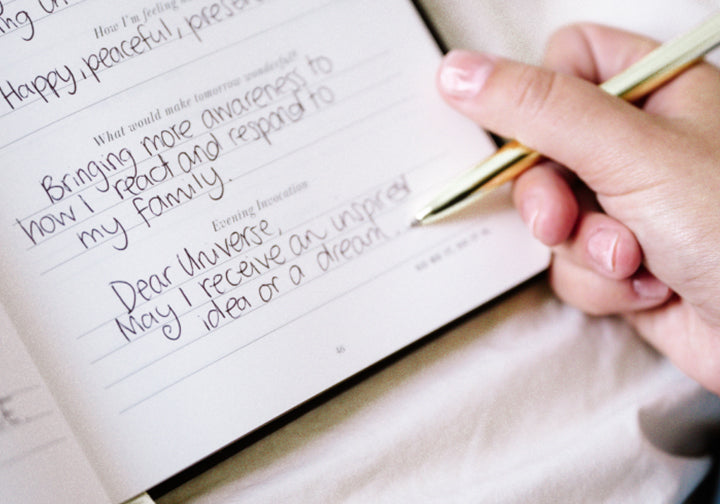 How I'm feeling
Happy, peaceful,
What would make tomorrow wonderful?
Bringing more awareness to
how I react and respond to
my family.
Evening Invocation
Dear Universe,
May I receive an inspired
idea or a dream.
46